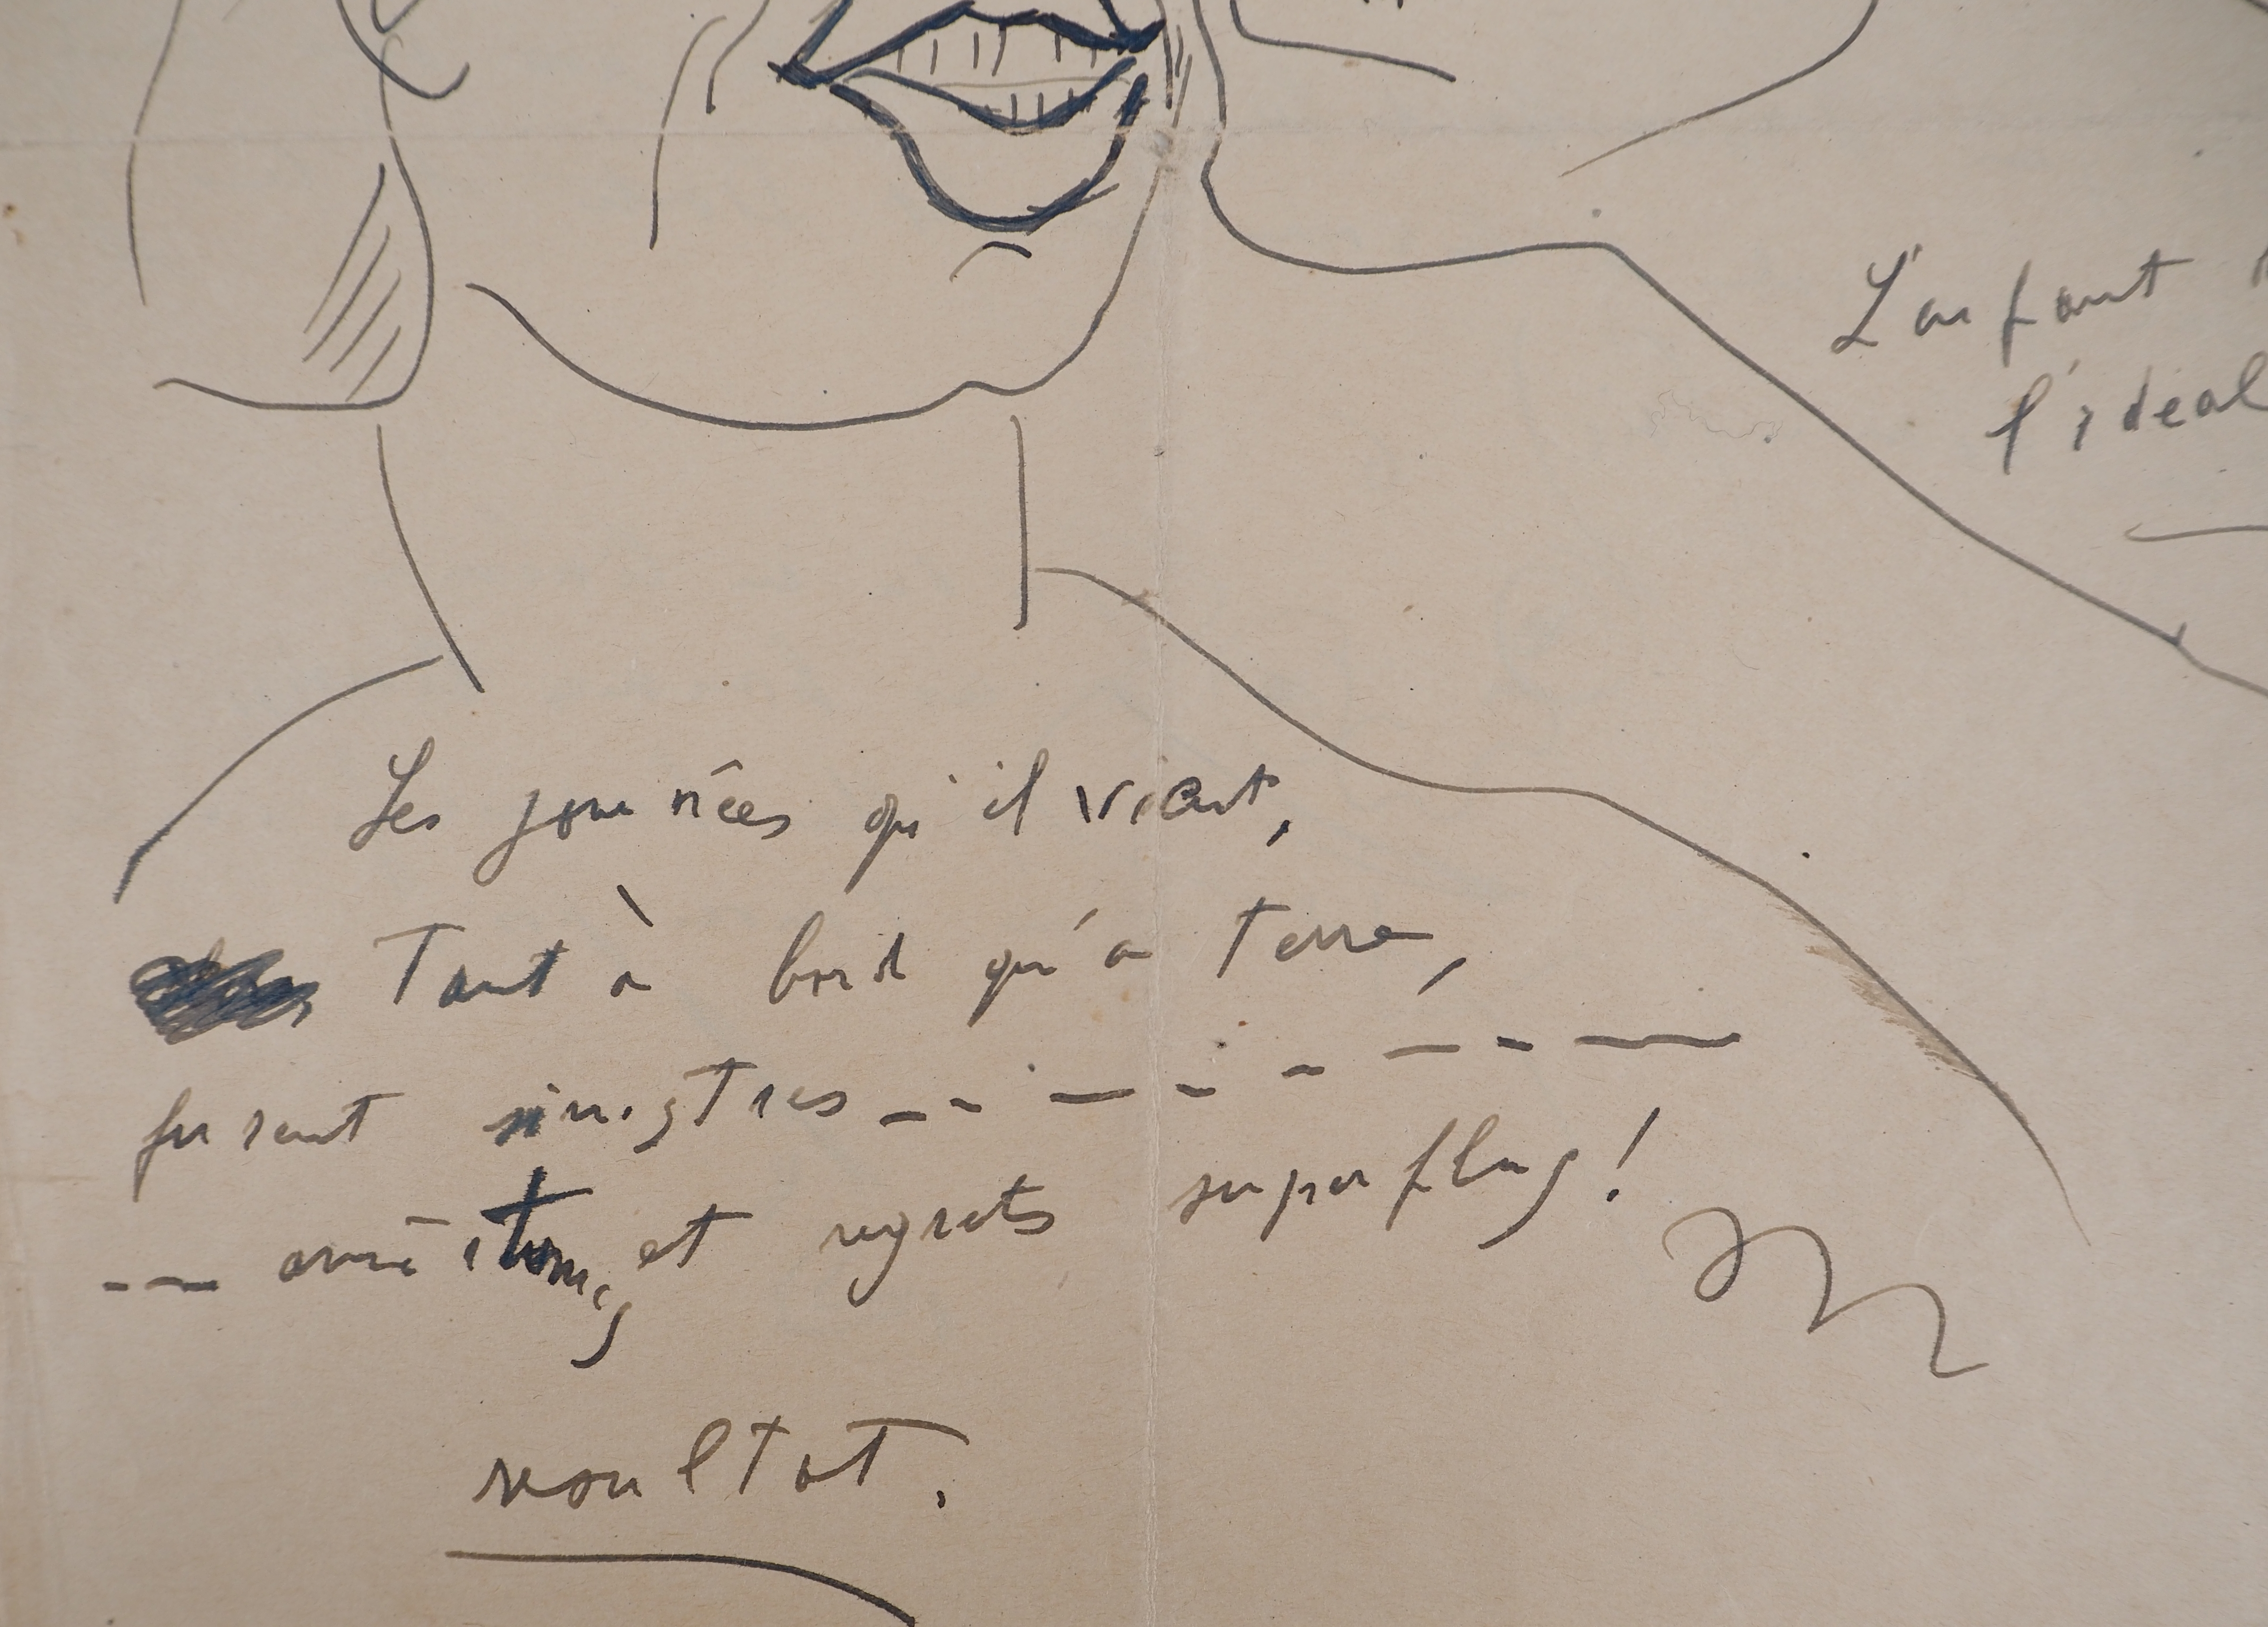 L'enfant
l'idéal
Les journées qu'il vient,
Tant à bord qu'à terre,
furent sinistres
et regrets superflus!
resultat.